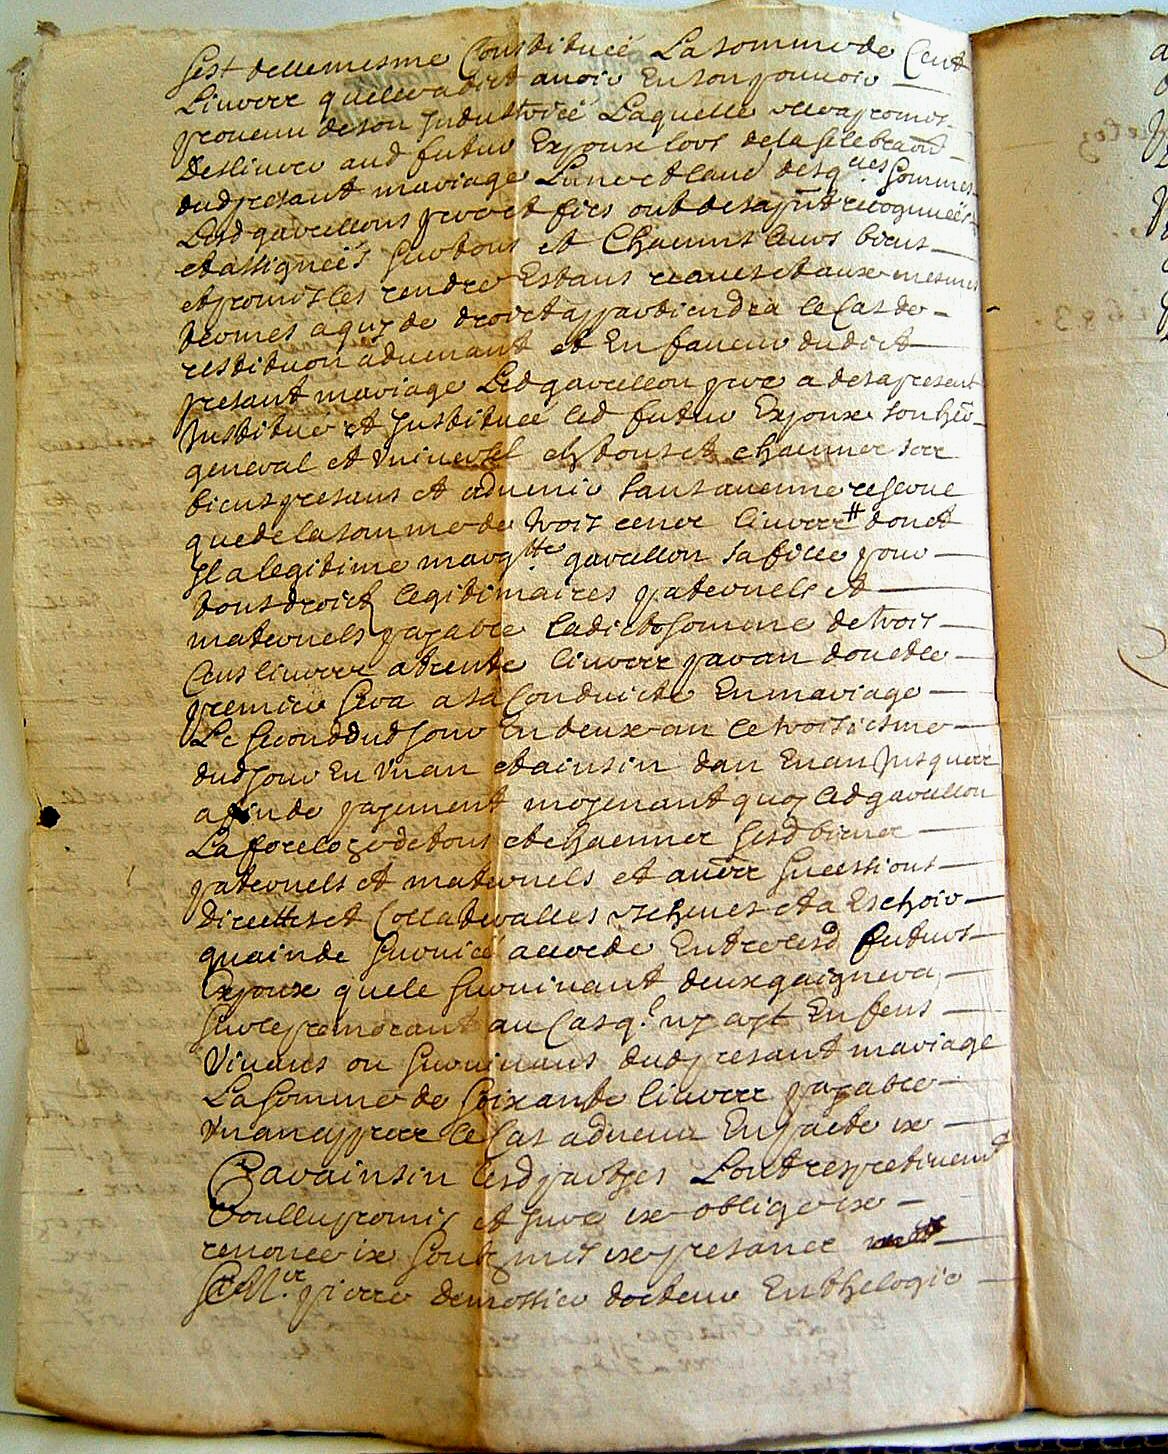 Sest dellemesme Constituée La somme de Cent
Liuvres quelleva dict avoir En son pouvoir
provenu de son Industriée Laquelle sera promis
Deslivrer aud futur Expoux lors de la selebraon
dud presant mariage Lune et lautre desqles sommes
Lesd gavellons pere et fils ont desapnt recogneuës
et assigneës sur tous et Chacuns leurs biens
et promis les rendre Estans receues et aux mesmes
termes a quy de droict appartiendra le Cas de
restituon advenant et En faveur dudict
presant mariage Led gavellon pere a desapresent
Institué et Instituee led futur Expoux son her
general et vniversel en tous et chacuns ses
biens presans et advenir sans aucune reserve
que de la somme de trois cens liuvres # dont
Il a legitimé margtte gavellon sa fille pour
tous droictz legitimaires paternels et
maternels payable ladicte somme de trois
Cens liuvres a trente liuvres par an dont le
premier sera a sa Conduicte En mariage
Le second dud jour En deux an le troisiesme
dud jour En vn an et ainsin dan En an Jusques
a fin de payement moyenant quoy led gavellon
La forcloze de tous et chacuns sesd biens
paternels et maternels et aures sucessions
Directtes et Collateralles escheues et a Eschoir
quainde survice accorde Entre lesd futurs
Expoux que le survivant deux gaignera
sur le premorant au Cas q.e ny ayt Enfens
Vivans ou survivans dud presant mariage
La somme de soixante liuvres payable
vn an appres le Cas advenu En pacte ix
Car ainsin lesd partyes Lont respectivement
Voullu promis et juré ix obligé ix
renoncé ix soubzmis ix presance
Sr Mre pierre demossieu docteur En thelogie